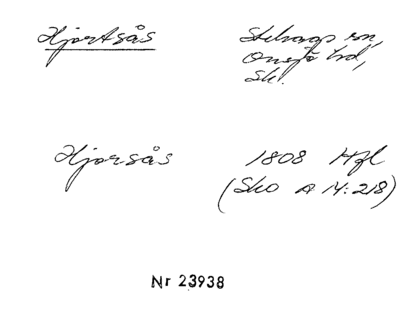 Hjortsås
Stehags sn,
Onsjö hd,
Sk.
Hjorsås
1808 Hfl
(Sko A IV:218)
Nr 23938